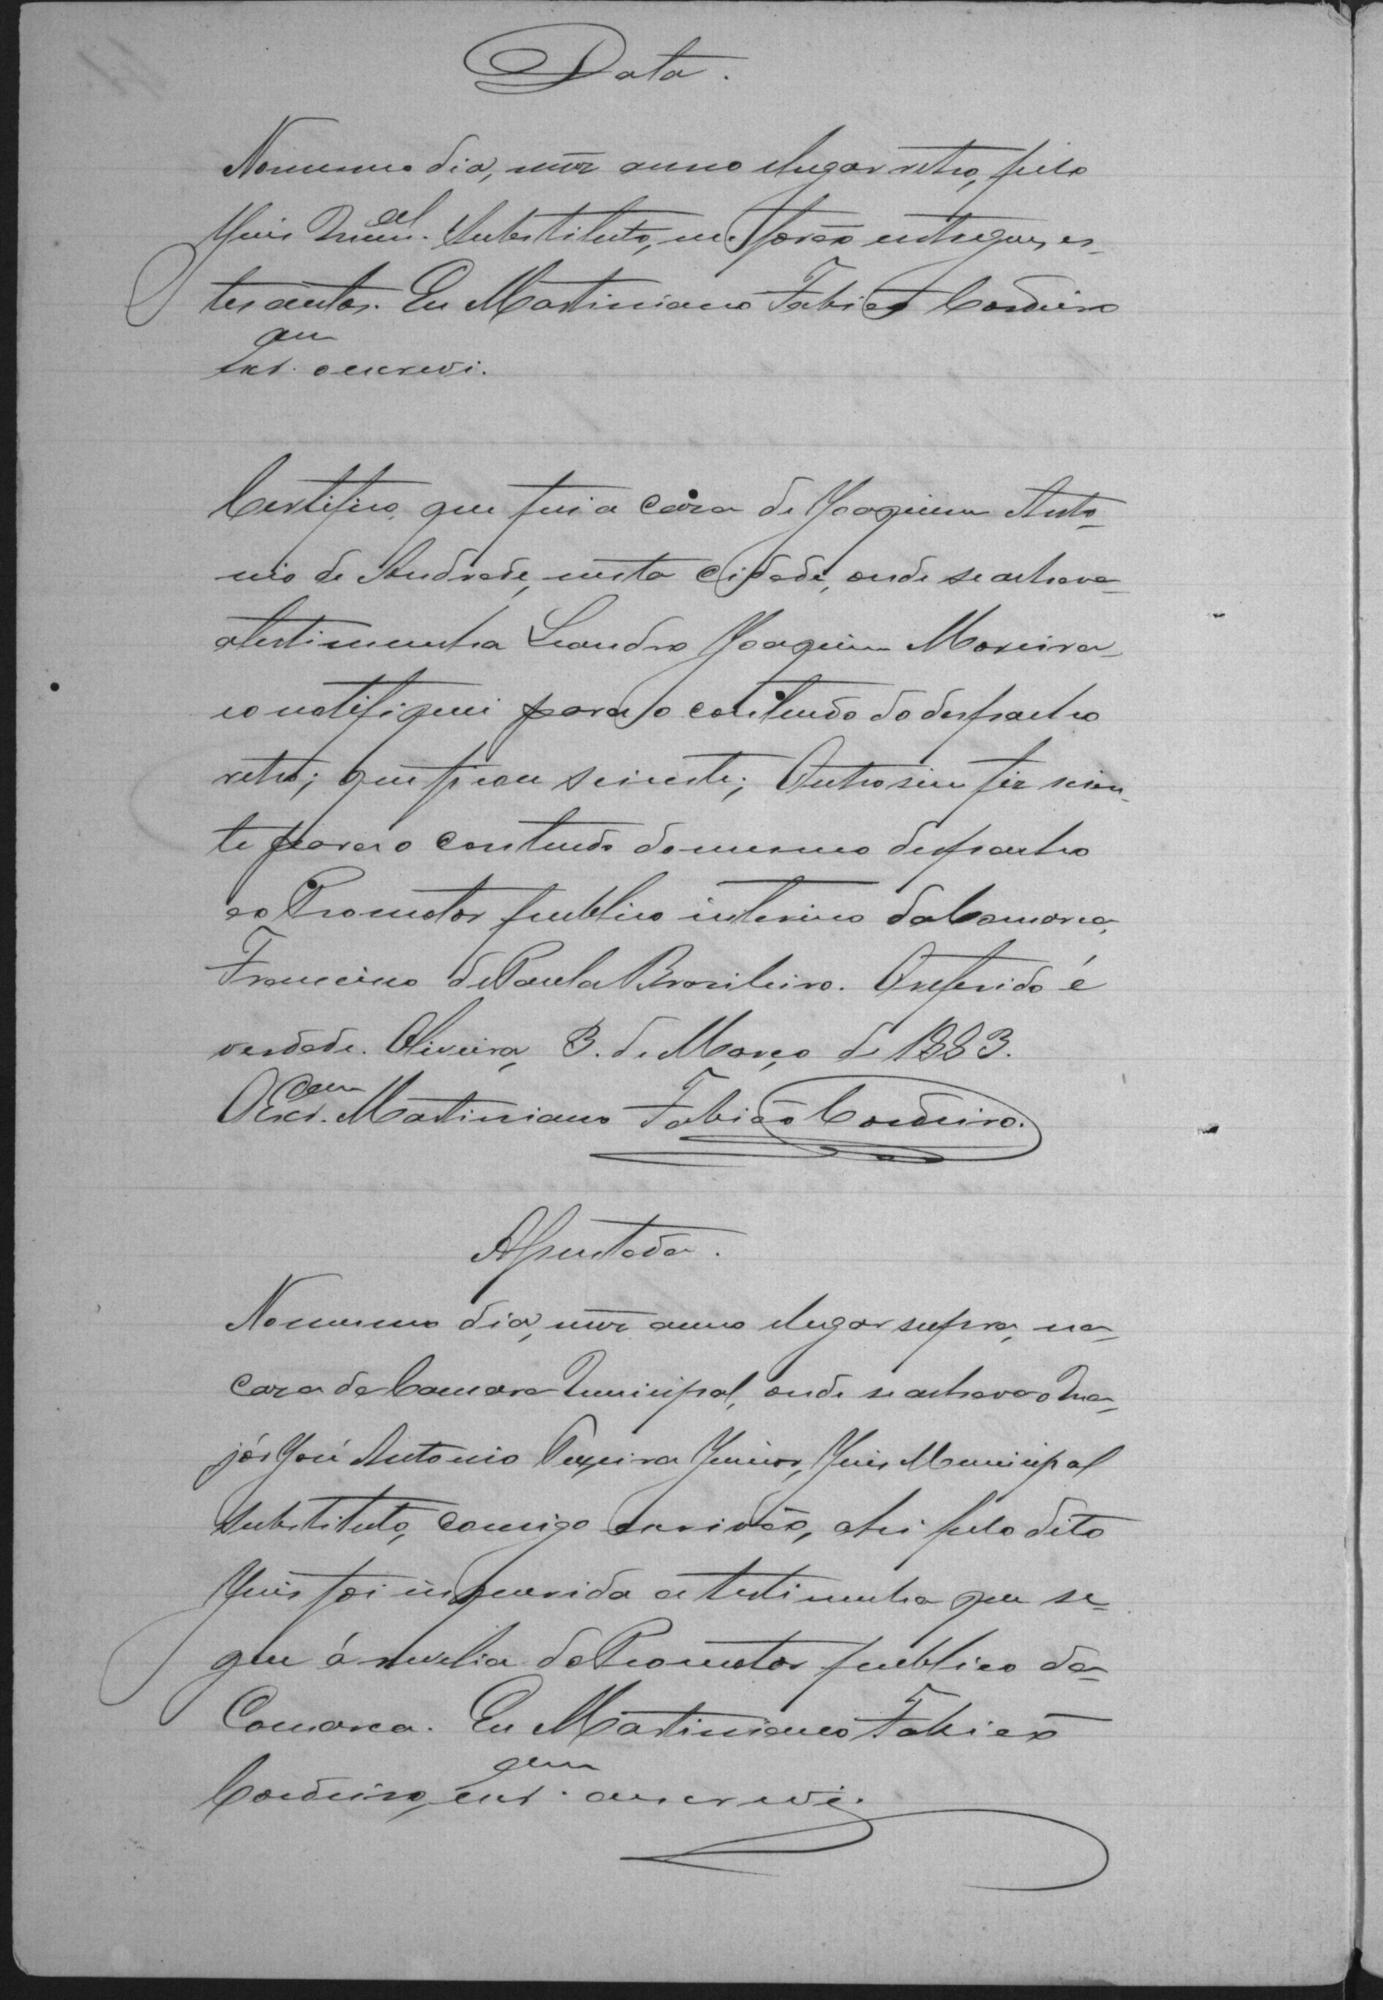 Data.
No mesmo dia, mez anno e lugar retro, pelo
Juis Mun.al Substituto, me forão entregues es-
tes autos. Eu Martiniano Fabião Cordeiro
Escr.am o escrevi.
Certifico, que fui a casa de Joaquim Anto-
nio de Andrade, nesta cidade, onde se achava
a testimunha Leandro Joaquim Moreira
e o notifiquei para o contendo do despacho
retro; que ficou sciente; Outrosim fiz scien-
te para o contendo do mesmo despacho
ao Promotor publico interino da Comarca,
Francisco de Paula Brasileiro. O referido é
verdade. Oliveira, 3. de Março de 1883.
O Escr.am Martiniano Fabião Cordeiro.
Assentada.
No mesmo dia, mez anno e lugar supra, na
casa da Camara Municipal, onde se achava o Ma-
jór José Antonio Teixeira Junior, Juis Municipal
substituto, comigo escrivão, ahi pelo dito
Juis foi inquerida a testimunha que se-
gue á revelia do Promotor publico da
Comarca. Eu Martiniano Fabião
Cordeiro, escr.am o escrevi.